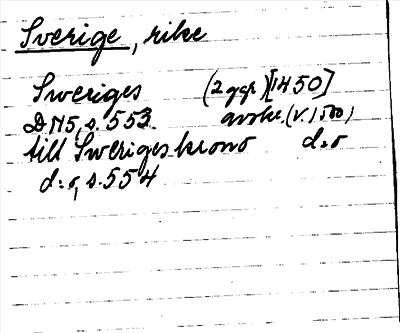 Sverige, rike
Sweriges (2 ggr) [1450]
DN5, s. 553. avskr. (v. 1500)
till Sweriges krono d:o
d:o, s. 554